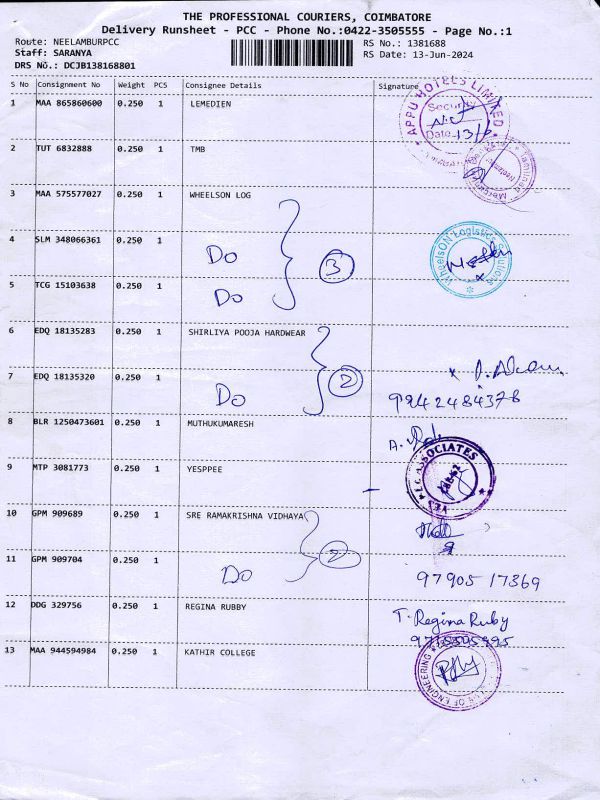 THE PROFESSIONAL COURIERS, COIMBATORE
Delivery Runsheet - PCC - Phone No.:0422-3505555 - Page No.:1
Route: NEELAMBURPCC RS No.: 1381688
Staff: SARANYA RS Date: 13-Jun-2024
DRS No.: DCJB138168801
S No Consignment No Weight PCS Consignee Details Signature
1 MAA 865860600 0.250 1 LEMEDIEN
APPU HOTELS LIMITED
Security
Date 13/6
2 TUT 6832888 0.250 1 TMB
3 MAA 575577027 0.250 1 WHEELSON LOG
4 SLM 348066361 0.250 1 Do 3
WheelsON Logistics Solutions
5 TCG 15103638 0.250 1 Do
6 EDQ 18135283 0.250 1 SHIRLIYA POOJA HARDWEAR
7 EDQ 18135320 0.250 1 Do 2
9942484378
8 BLR 1250473601 0.250 1 MUTHUKUMARESH
9 MTP 3081773 0.250 1 YESPPEE
ASSOCIATES
10 GPM 909689 0.250 1 SRE RAMAKRISHNA VIDHAYA
11 GPM 909704 0.250 1 Do 2 97905 17369
12 DDG 329756 0.250 1 REGINA RUBBY T. Regina Ruby
13 MAA 944594984 0.250 1 KATHIR COLLEGE
OF ENGINEERING